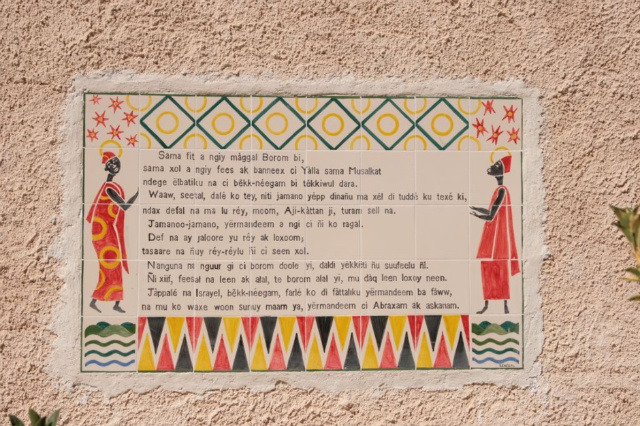 Sama fit a ngiy màggal Borom bi,
sama xol a ngiy fees ak banneex ci Yàlla sama Musalkat
ndege ëlbatiku na ci bëkk-néegam bi tëkkiwul dara.
Waaw, seetal, dalé ko tey, niti jamano yépp dinañu ma xél di tuddó ku texé ki,
ndax defal na ma lu réy, moom, Aji-kàttan ji, turam sell na.
Jamanoo-jamano, yërmandeem a ngi ci ñi ko ragal.
Def na ay jaloore yu réy ak loxoom;
tasaare na ñuy réy-réylu ñi ci seen xol.
Nanguna ni nguur gi ci borom doole yi, daldi yékkëti ñu suufeelu ñi.
Ñi xiif, feesal na leen ak alal, te borom alal yi, mu dàq leen loxoy neen.
Jàppalé na Israyel, bëkk-néegam, farlé ko di fàttaliku yërmandeem ba fàww,
na mu ko waxe woon suruy maam ya, yërmandeem ci Abraxam ak askanam.